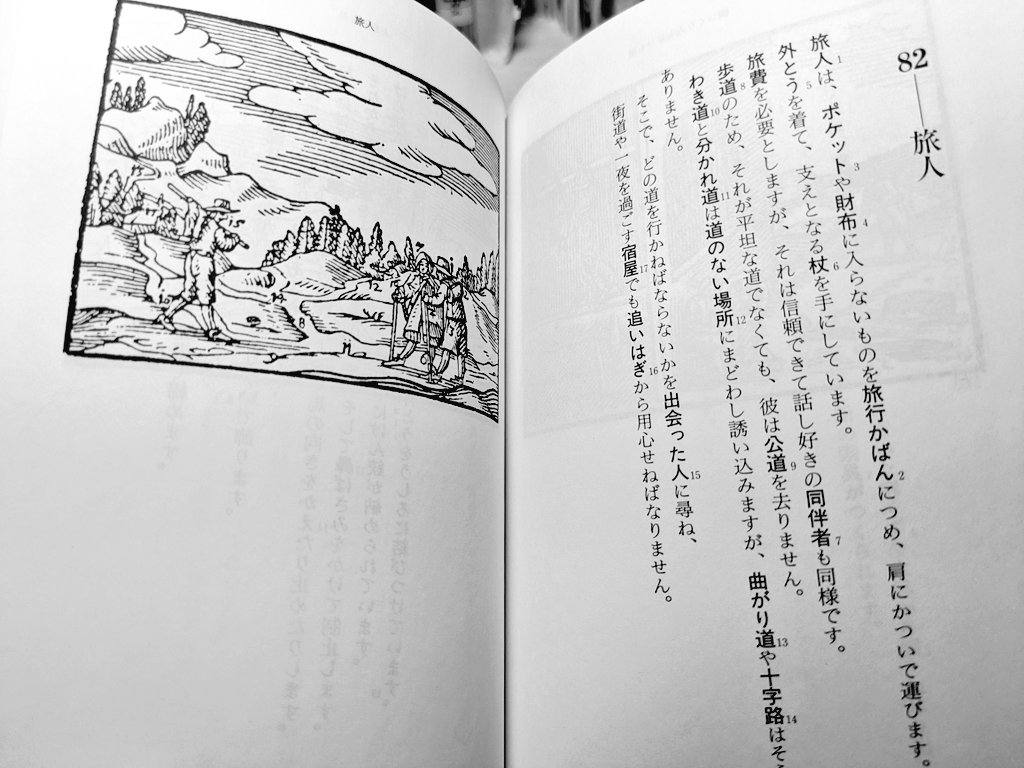 82——旅人
旅人1は、ポケット3や財布4に入らないものを旅行かばん2につめ、肩にかついで運びます。
外とう5を着て、支えとなる杖6を手にしています。
旅費を必要としますが、それは信頼できて話し好きの同伴者7も同様です。
歩道8のため、それが平坦な道でなくても、彼は公道9を去りません。
わき道10と分かれ道11は道のない場所12にまどわし誘い込みますが、曲がり道13や十字路14はそ
ありません。
そこで、どの道を行かねばならないかを出会った人15に尋ね、
街道や一夜を過ごす宿屋17でも追いはぎ16から用心せねばなりません。
旅人